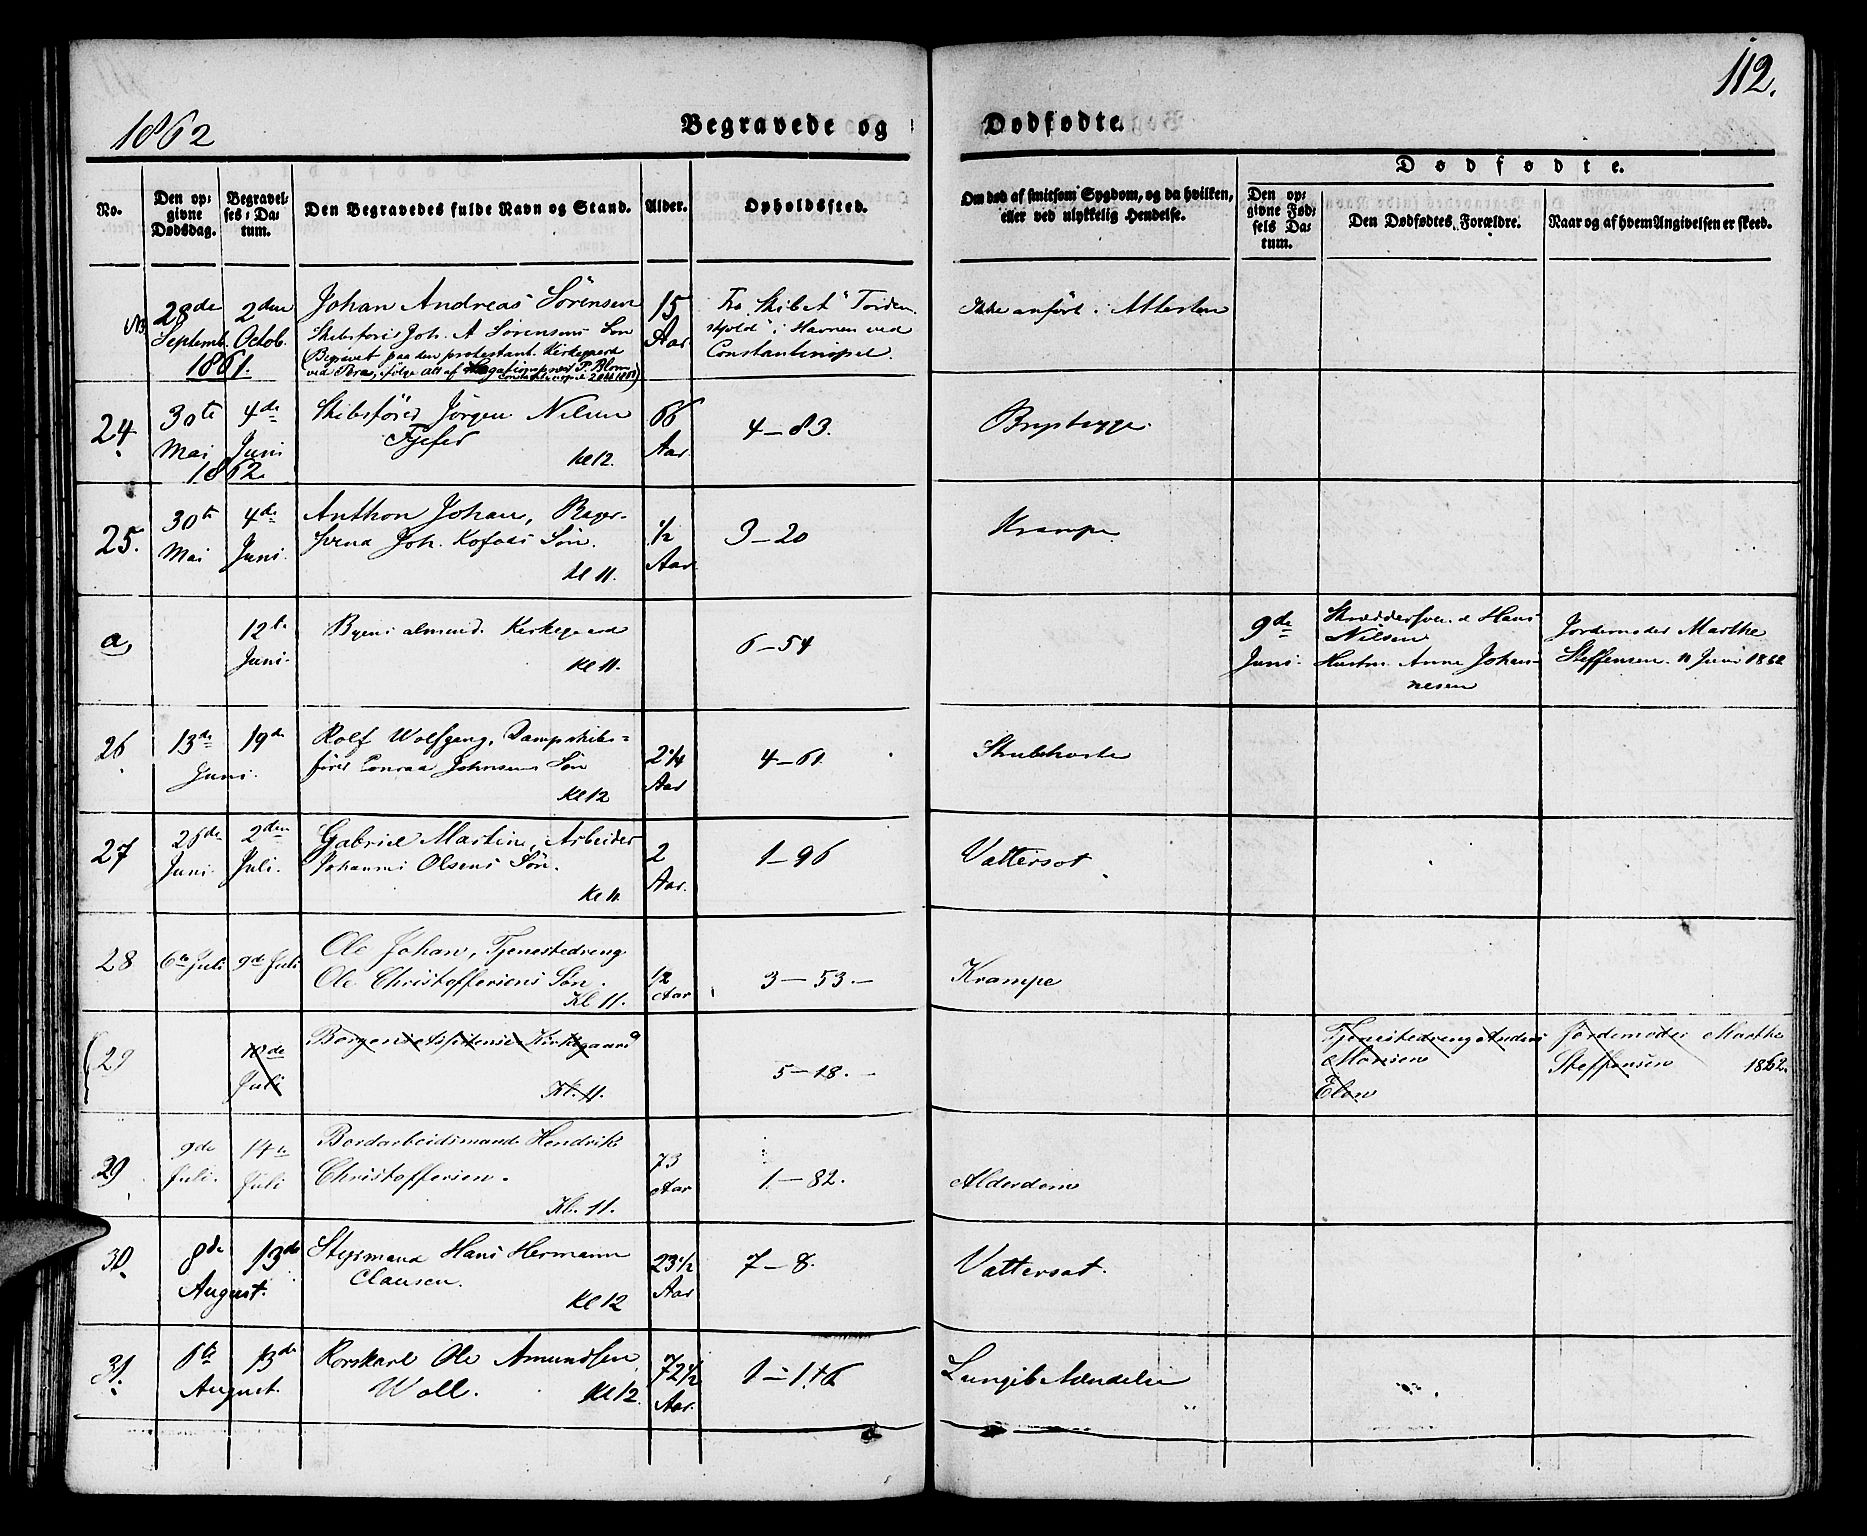 112.
1862
Begravede og Dødfødte.
Dødfødte.
No.
Den op-
givne
Dødsdag.
Begravel-
ses-Da-
tum.
Den Begravedes fulde Navn og Stand.
Alder.
Opholdssted.
Om død af smitsom Sygdom, og da hvilken,
eller ved ulykkelig Hendelse.
Den op-
givne Fød-
sels Da-
tum.
Den Dødfødtes Forældre.
Naar og af hvem Angivelsen er skeed.
28de 2den Johan Andreas Sörensen 15 Fra Skibet "Torden-
Septemb. Octob. Skibsförer Joh. A Sörensens Sön Aar skjold" i Havnen ved
1861. Begravet paa den protestant. Kirkegaard Constantinopel.
ved Pera, ifölge Att af P. Blom
Ikke anfört i Attesten
24. 30te 4de Skibsförer Jörgen Nilsen 66 4-83.
Mai Juni Aar
1862 Kl 12.
25. 30te 4de Anthon Johan, Bager- 1/2 3-20 Krampe
Mai Juni. svend Joh. Kofods Sön. Aar
Kl 11.
a, 12te Byens almind. Kirkegaard 6-54 9de Skræddersvend Hans Jordemoder Marthe
Juni. Kl 11. Juni. Nilsen Steffensen. 11 Juni 1862
Hustru Anne Johan-
nesen
26 13de 19de Rolf Wolfgang, Dampskibs- 2 1/4 4-61 Strubehoste
Juni. förer Conrad Johnsens Sön Aar
Kl 12
27 26de 2den Gabriel Martin, Arbeider 2 1-96 Vattersot
Juni. Juli. Johannes Olsens Sön. Aar.
Kl 11.
28 6te Juli 9de Juli Ole Johan, Tjenestedreng 1/2 3-53.- Krampe
Ole Christoffersens Sön. Aar
Kl. 11.
29 10de Kirkegaard 5-18.- Tjenestedreng Anders Jordemoder Marthe
Juli Kl. 11. Monsen Steffensen 1862.
29 9de 14de Bordarbeidsmand Hendrik 73 1-82. Alderdom
Juli. Juli Christoffersen. Aar
Kl. 11.
30. 8de 13de Styrmand Hans Hermann 23 1/2 7-8. Vattersot.
August. Clausen. Aar
Kl 12
31. 6te 13de Korskarl Ole Amundsen 72 1/2 1-146 Lungebetændelse
August. Woll. Kl 12. Aar.